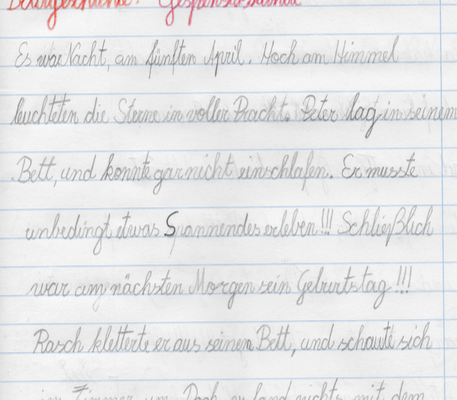 Gespenstestunde
Es war Nacht, am fünften April. Hoch am Himmel
leuchteten die Sterne in voller Pracht. Peter lag in seinem
Bett, und konnte gar nicht einschlafen. Er musste
unbedingt etwas Spannendes erleben!!! Schließlich
war am nächsten Morgen sein Geburtstag!!!
Rasch kletterte er aus seinem Bett, und schaute sich
im Zimmer um. Doch er fand nichts mit dem